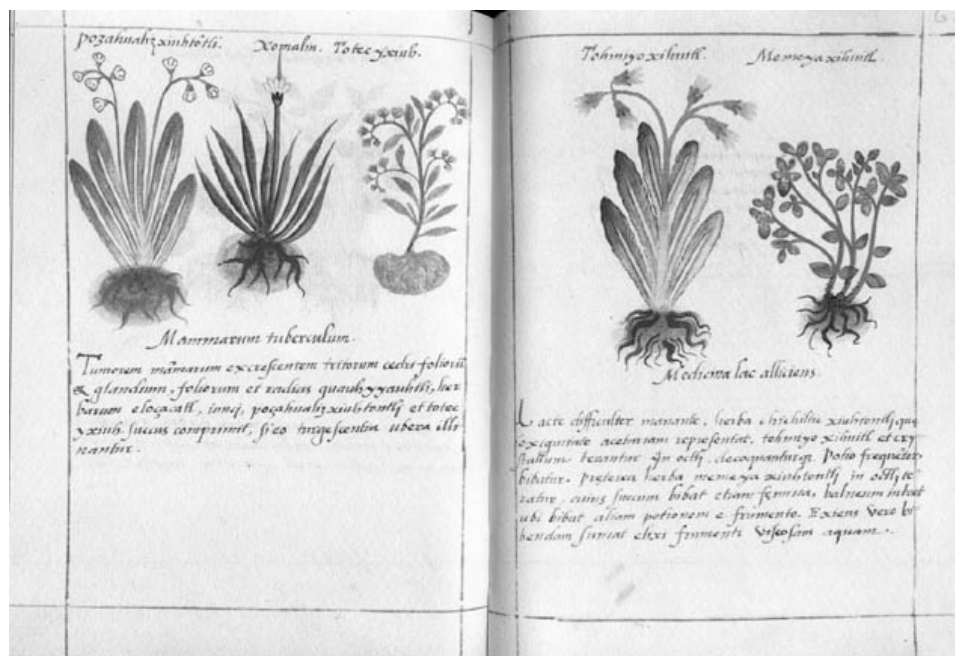 pozahualizxiuhtōtli. Xomalin. Totecyxiuh.
Mammarum tuberculum.
Tumorem māmarum excrescentem tritorum cedri foliorū
& glandium, foliorum et radicis quauhyyauhtli, her
barum eloçacatl,
yxiuh succus comprimit, si eo turgescentia ubera illi
nantur.
Tohmiyoxihuitl. Memeyaxihuitl.
Medicina lac alliciens.
Lacte difficulter manante, herba chichiltic xiuhtontli que
exiguitate acetariam repræsentat, tohmiyoxihuitl et cry
stallum terantur in octli, decoquanturq. Potio frequēter
bibatur. Præterea herba memeya xiuhtontli in octli te
ratur, cuius succum bibat etiam femina, balneum intret
ubi bibat aliam potionem e frumento. Exiens vero bi
bendam sumat elixi frumenti viscosam aquam.